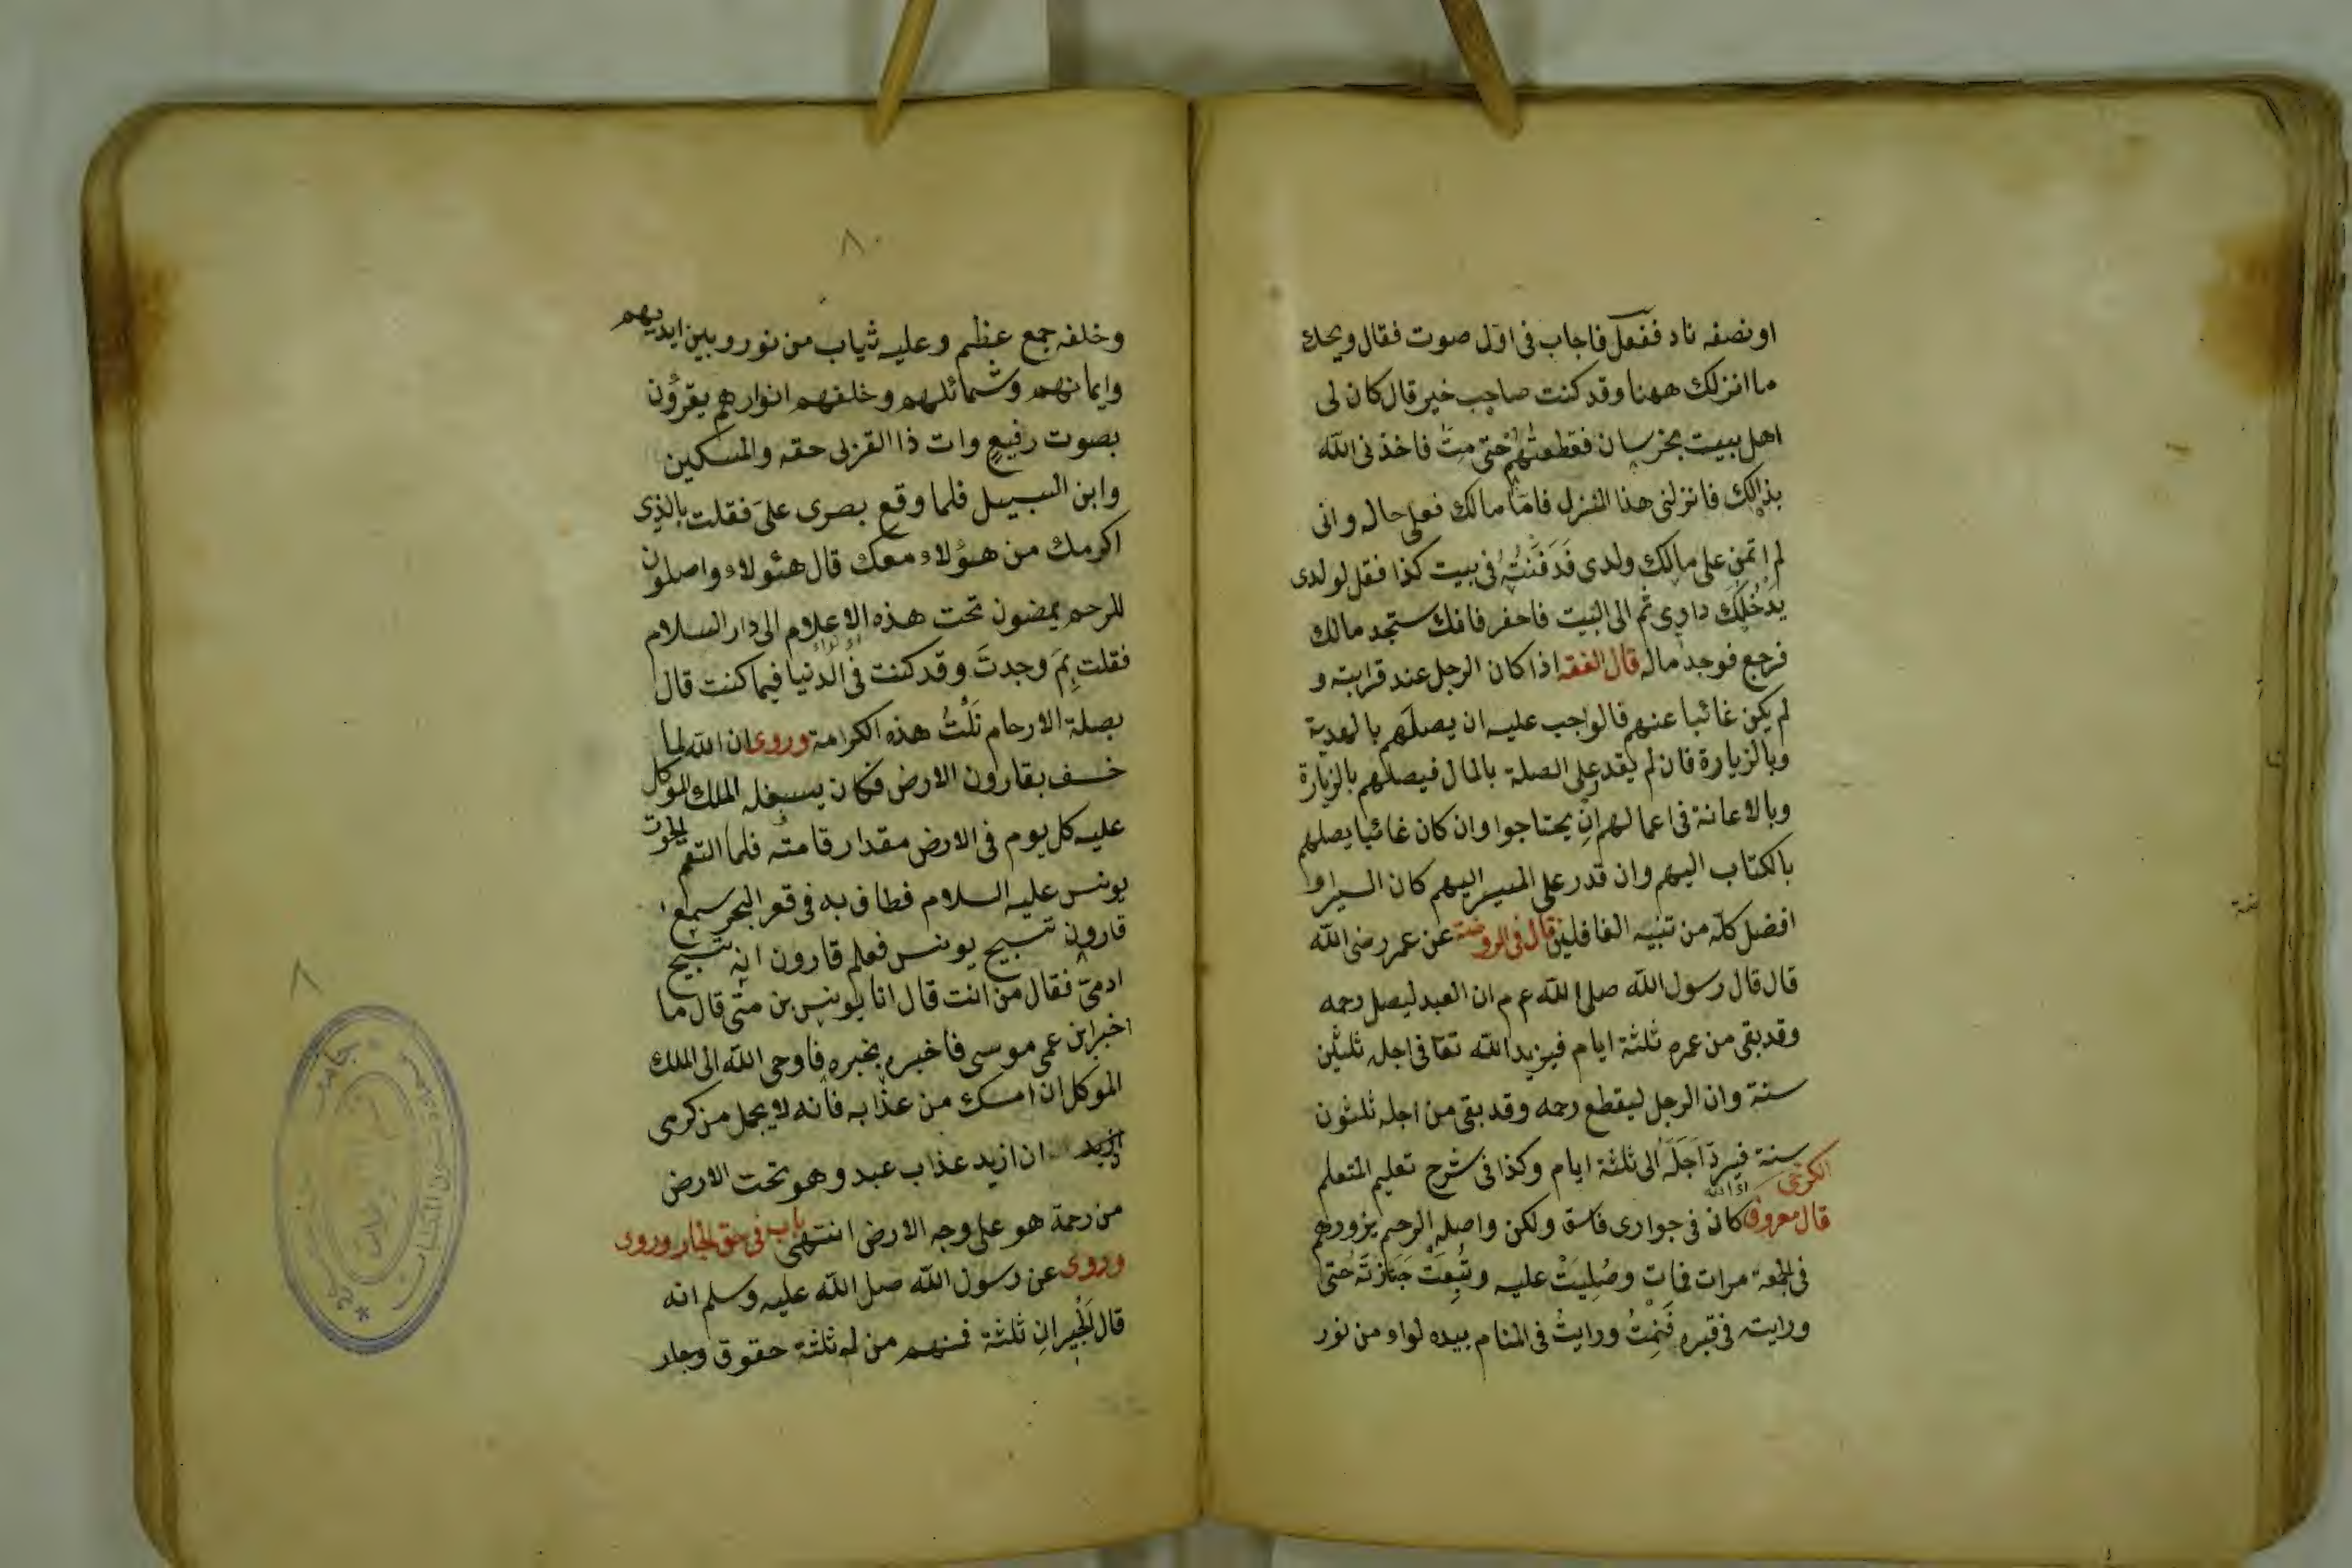 او نصفه ناد ففعل فاجاب فى اول صوت فقال ويحك
ما انزلك ههنا وقد كنت صاحب خير قال كان لى
اهل بيت بخرسان فقطعتهم حتى مت فاخذنى الله
بذالك فانزلنى هذا المنزل فاما مالك فعلى حاله وانى
لم اتمن على مالك ولدى فدفنته فى بيت كذا فقل لولدى
يدخلك دارى ثم الى البيت فاحفر فانك ستجد مالك
فرجع فوجد ماله قال الفقه اذا كان الرجل عند قرابته و
لم يكن غائبا عنهم فالواجب عليه ان يصلهم بالهدية
وبالزيارة فان لم يقدر على الصلة بالمال فيصلهم بالزيارة
وبالاعانة فى اعمالهم ان يحتاجوا وان كان غائبا يصلهم
بالكتاب اليهم وان قدر على المسير اليهم كان السير او
افضل كله من تنبيه الغافلين قال فى الروضة عن عمر رضى الله
قال قال رسول الله صلى الله ع م ان العبد ليصل رحمه
وقد بقى من عمره ثلثة ايام فيزيد الله تعا فى اجله ثلثين
سنة وان الرجل ليقطع رحمه وقد بقى من اجله ثلثون
سنة فيرد اجله الى ثلثة ايام وكذا فى شرح تعليم المتعلم
الكرخى
قال معروف كان فى جوارى فاسق ولكن واصله الرحم يزورهم
فى الجمعة مرات فمات وصليت عليه وتبعت جنازته حتى
ورايته فى قبره فنمت ورايت فى المنام بيده لواء من نور
٨٠
وخلفه جمع عظيم وعليه ثياب من نور وبين ايديهم
وايمانهم وشمائلهم وخلفهم انوارهم يقرؤن
بصوت رفيع وات ذا القربى حقه والمسكين
وابن السبيل فلما وقع بصرى على فقلت بالذى
اكرمك من هؤلاء معك قال هئولاء واصلون
للرحم يمضون تحت هذه الاعلام الى دار السلام
فقلت بم وجدت وقد كنت فى الدنيا فيما كنت قال
بصلة الارحام نلت هذه الكرامة وروى ان الله لما
خسف بقارون الارض فكان يسبغله الملك الموكل
عليه كل يوم فى الارض مقدار قامته فلما التقم الحوت
يونس عليه السلام فطاف به فى قعر البحر سمع
قارون تسبيح يونس فعلم قارون انه تسبيح
ادمى فقال من انت قال انا يونس بن متى قال ما
اخبر ابن عمى موسى فاخبره بخبره فاوحى الله الى الملك
الموكل ان امسك من عذابه فانه لا يجمل من كرمى
ازيد ان ازيد عذاب عبد وهو تحت الارض
من رحمة هو على وجه الارض انتهى باب فى حق الجار وروى
وروى عن رسول الله صلى الله عليه وسلم انه
قال الجيران ثلثة فمنهم من له ثلثة حقوق وجار
٨